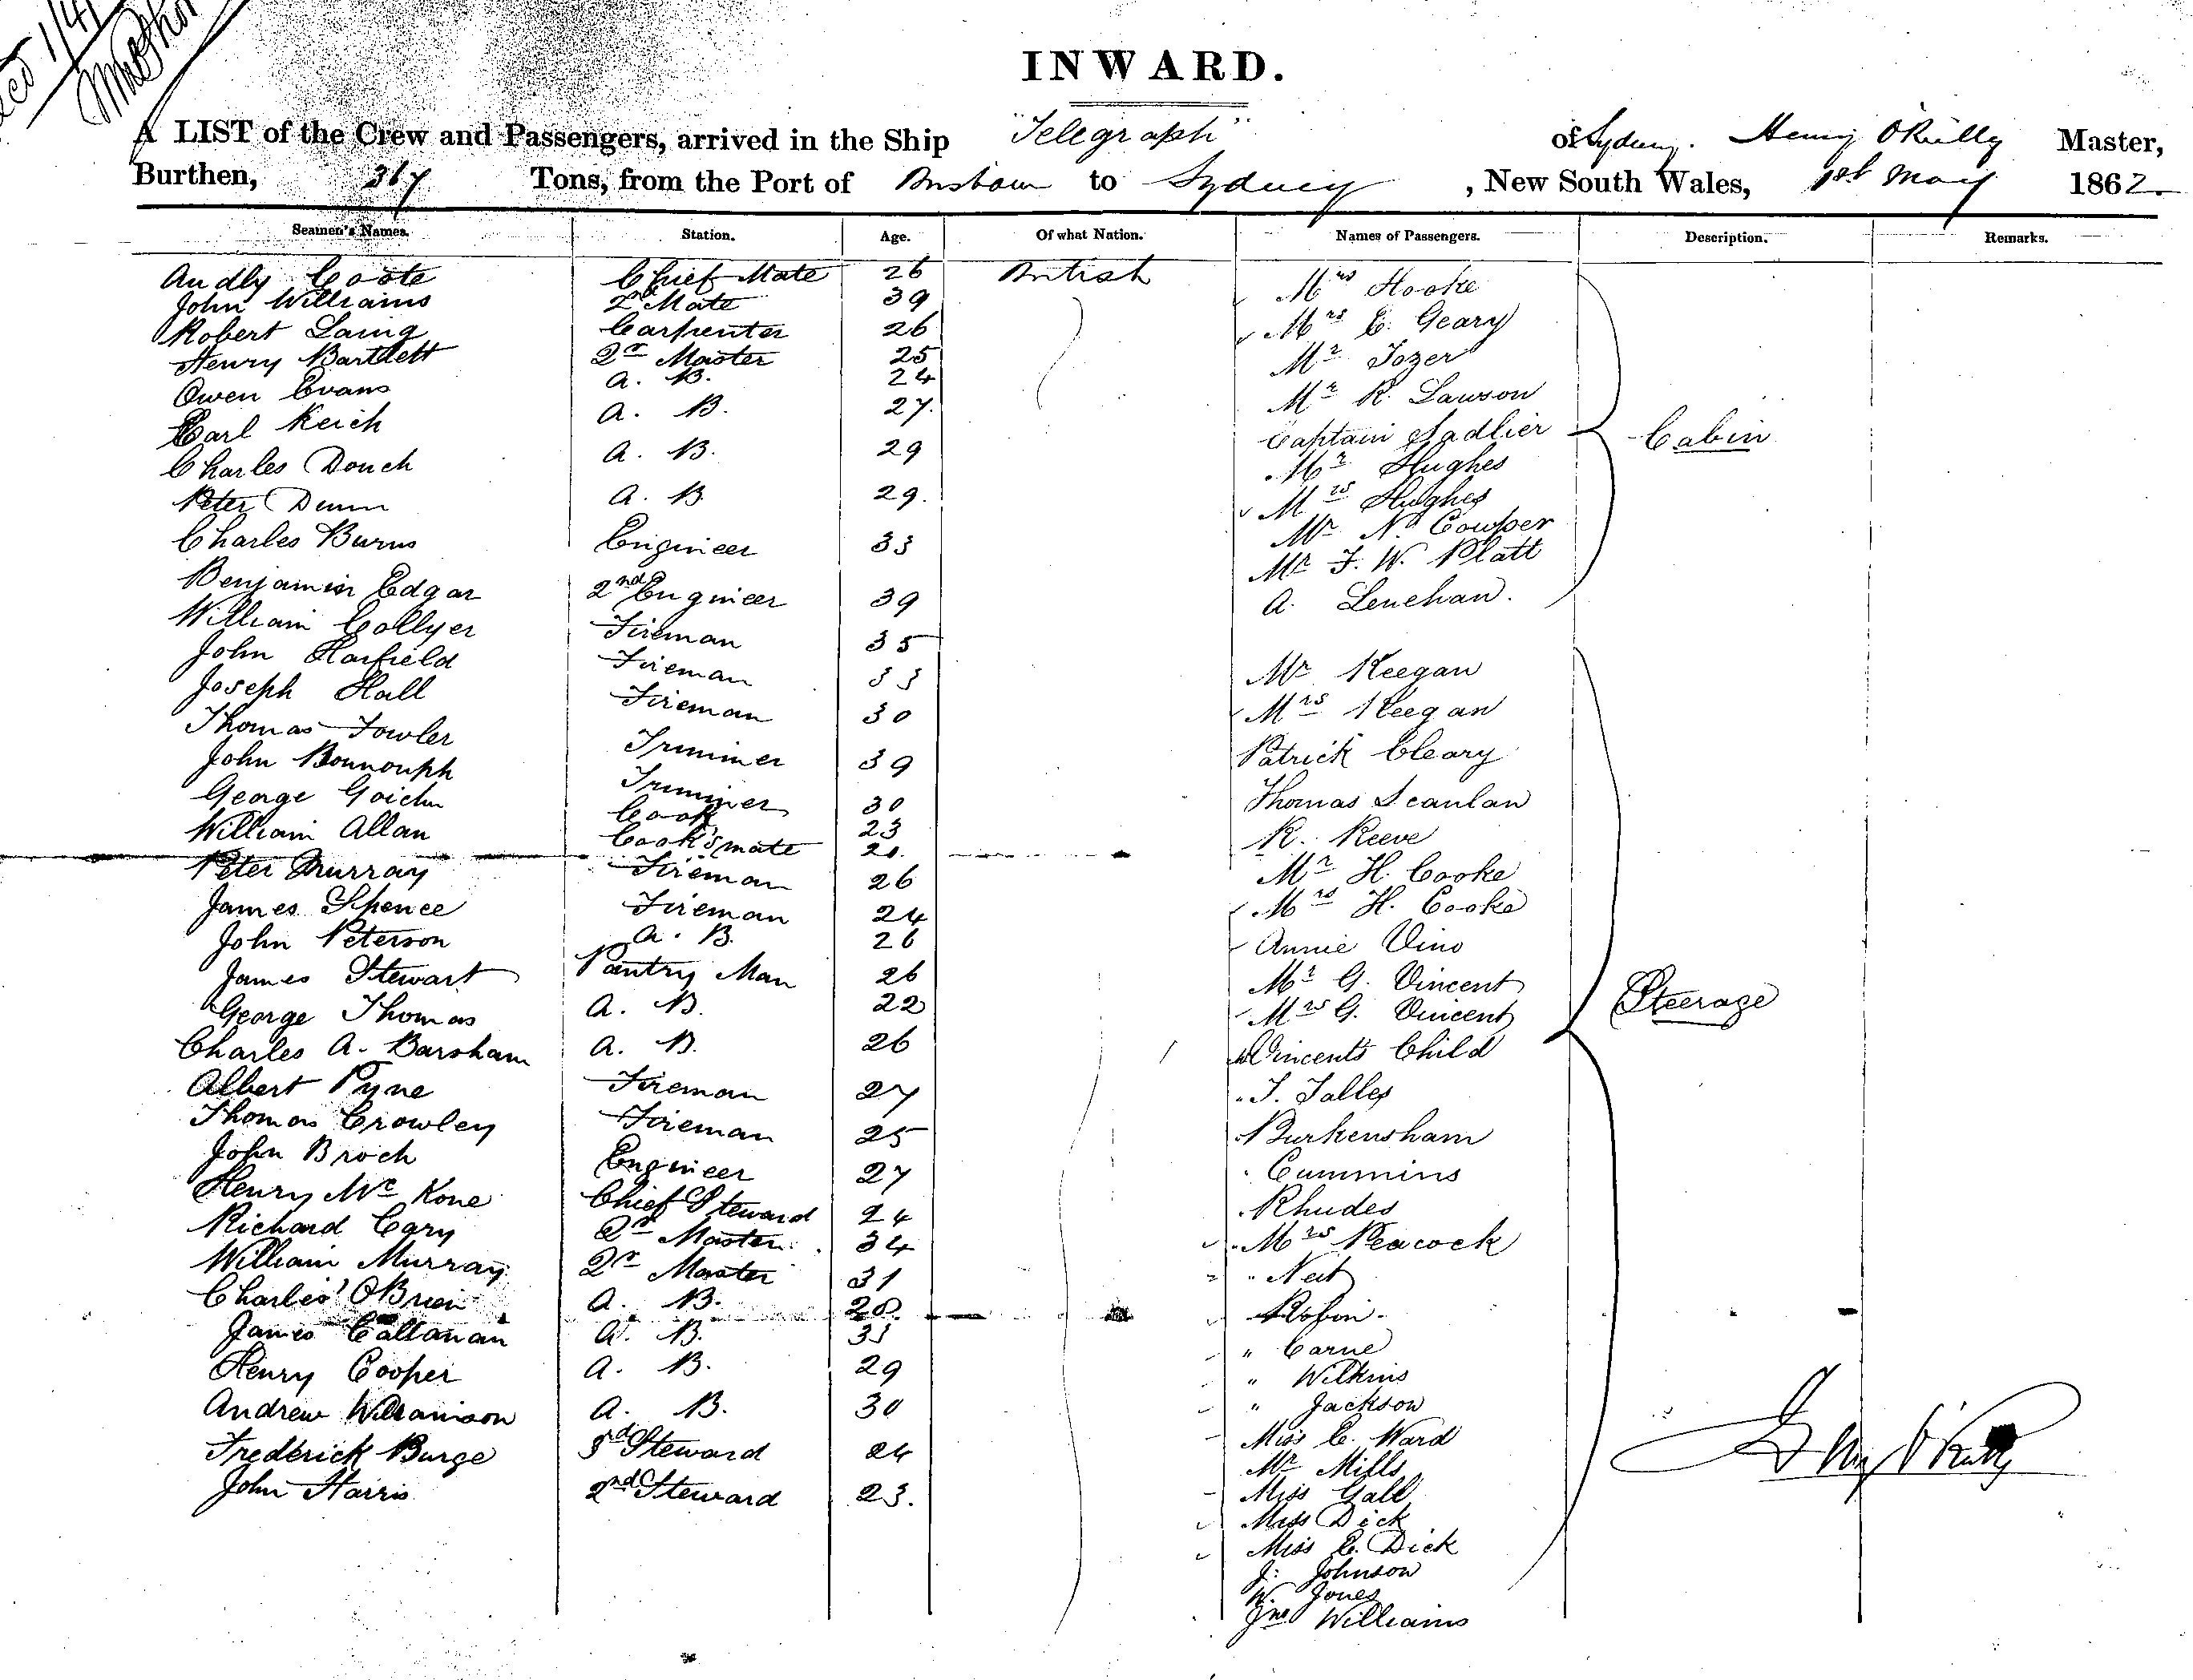 INWARD.
A LIST of the Crew and Passengers, arrived in the Ship "Telegraph" of Sydney. Henry O'Reilly Master,
Burthen, 367 Tons, from the Port of Brisbane to Sydney, New South Wales, 1st May 1862.
Seamen's Names. Station. Age. Of what Nation. Names of Passengers. Description. Remarks.
Audly Coote Chief Mate 26 British
John Williams 2nd Mate 39
Robert Laing Carpenter 26
Henry Bartlett Qr Master 25
Owen Evans A. B. 24
Carl Reich A. B. 27.
Charles Douch A. B. 29
Peter Dunn A. B 29.
Charles Burns Engineer 33
Benjamin Edgar 2nd Engineer 39
William Collyer Fireman 35
John Harfield Fireman 33
Joseph Hall Fireman 30
Thomas Fowler Trimmer 39
John Trimmer 30
George Cook 23
William Allan Cook's mate 20.
Peter Murray Fireman 26
James Spence Fireman 24
John Peterson A. B. 26
James Stewart Pantry Man 26
George Thomas A. B. 22
Charles A. Barsham A. B. 26
Albert Pyne Fireman 27
Thomas Crowley Fireman 25
John Broch Engineer 27
Henry McKone Chief Steward 24
Richard Cary Qr Master 34
William Murray Qr Master 31
Charles O'Brien A. B. 28.
James Callanan A. B. 35
Henry Cooper A. B. 29
Andrew Williamson A. B. 30
Frederick Burge 3rd Steward 24
John Harris 2nd Steward 23.
Mrs Hooke
Mrs E. Geary
Mr Tozer
Mr R. Lawson
Captain Sadlier
Cabin
Mr Hughes
Mrs Hughes
Mr N. Cowper
Mr F. W. Platt
A. Lenehan.
Mr Keegan
Mrs Keegan
Patrick Cleary
Thomas Scanlan
R. Reeve
Mr H. Cooke
Mrs H. Cooke
Annie Vino
Mr G. Vincent
Mrs G. Vincent
Steerage
Vincent's Child
T. Salles
Burkensham
Cummins
Rhudes
Mrs Peacock
" Neit
Robin.
" Carne
" Wilkins
" Jackson
Miss C. Ward
Mr Mills
Miss Gall
Miss Dick
Miss C. Dick
J. Johnson
W. Jones
Jno Williams
Henry O'Reilly